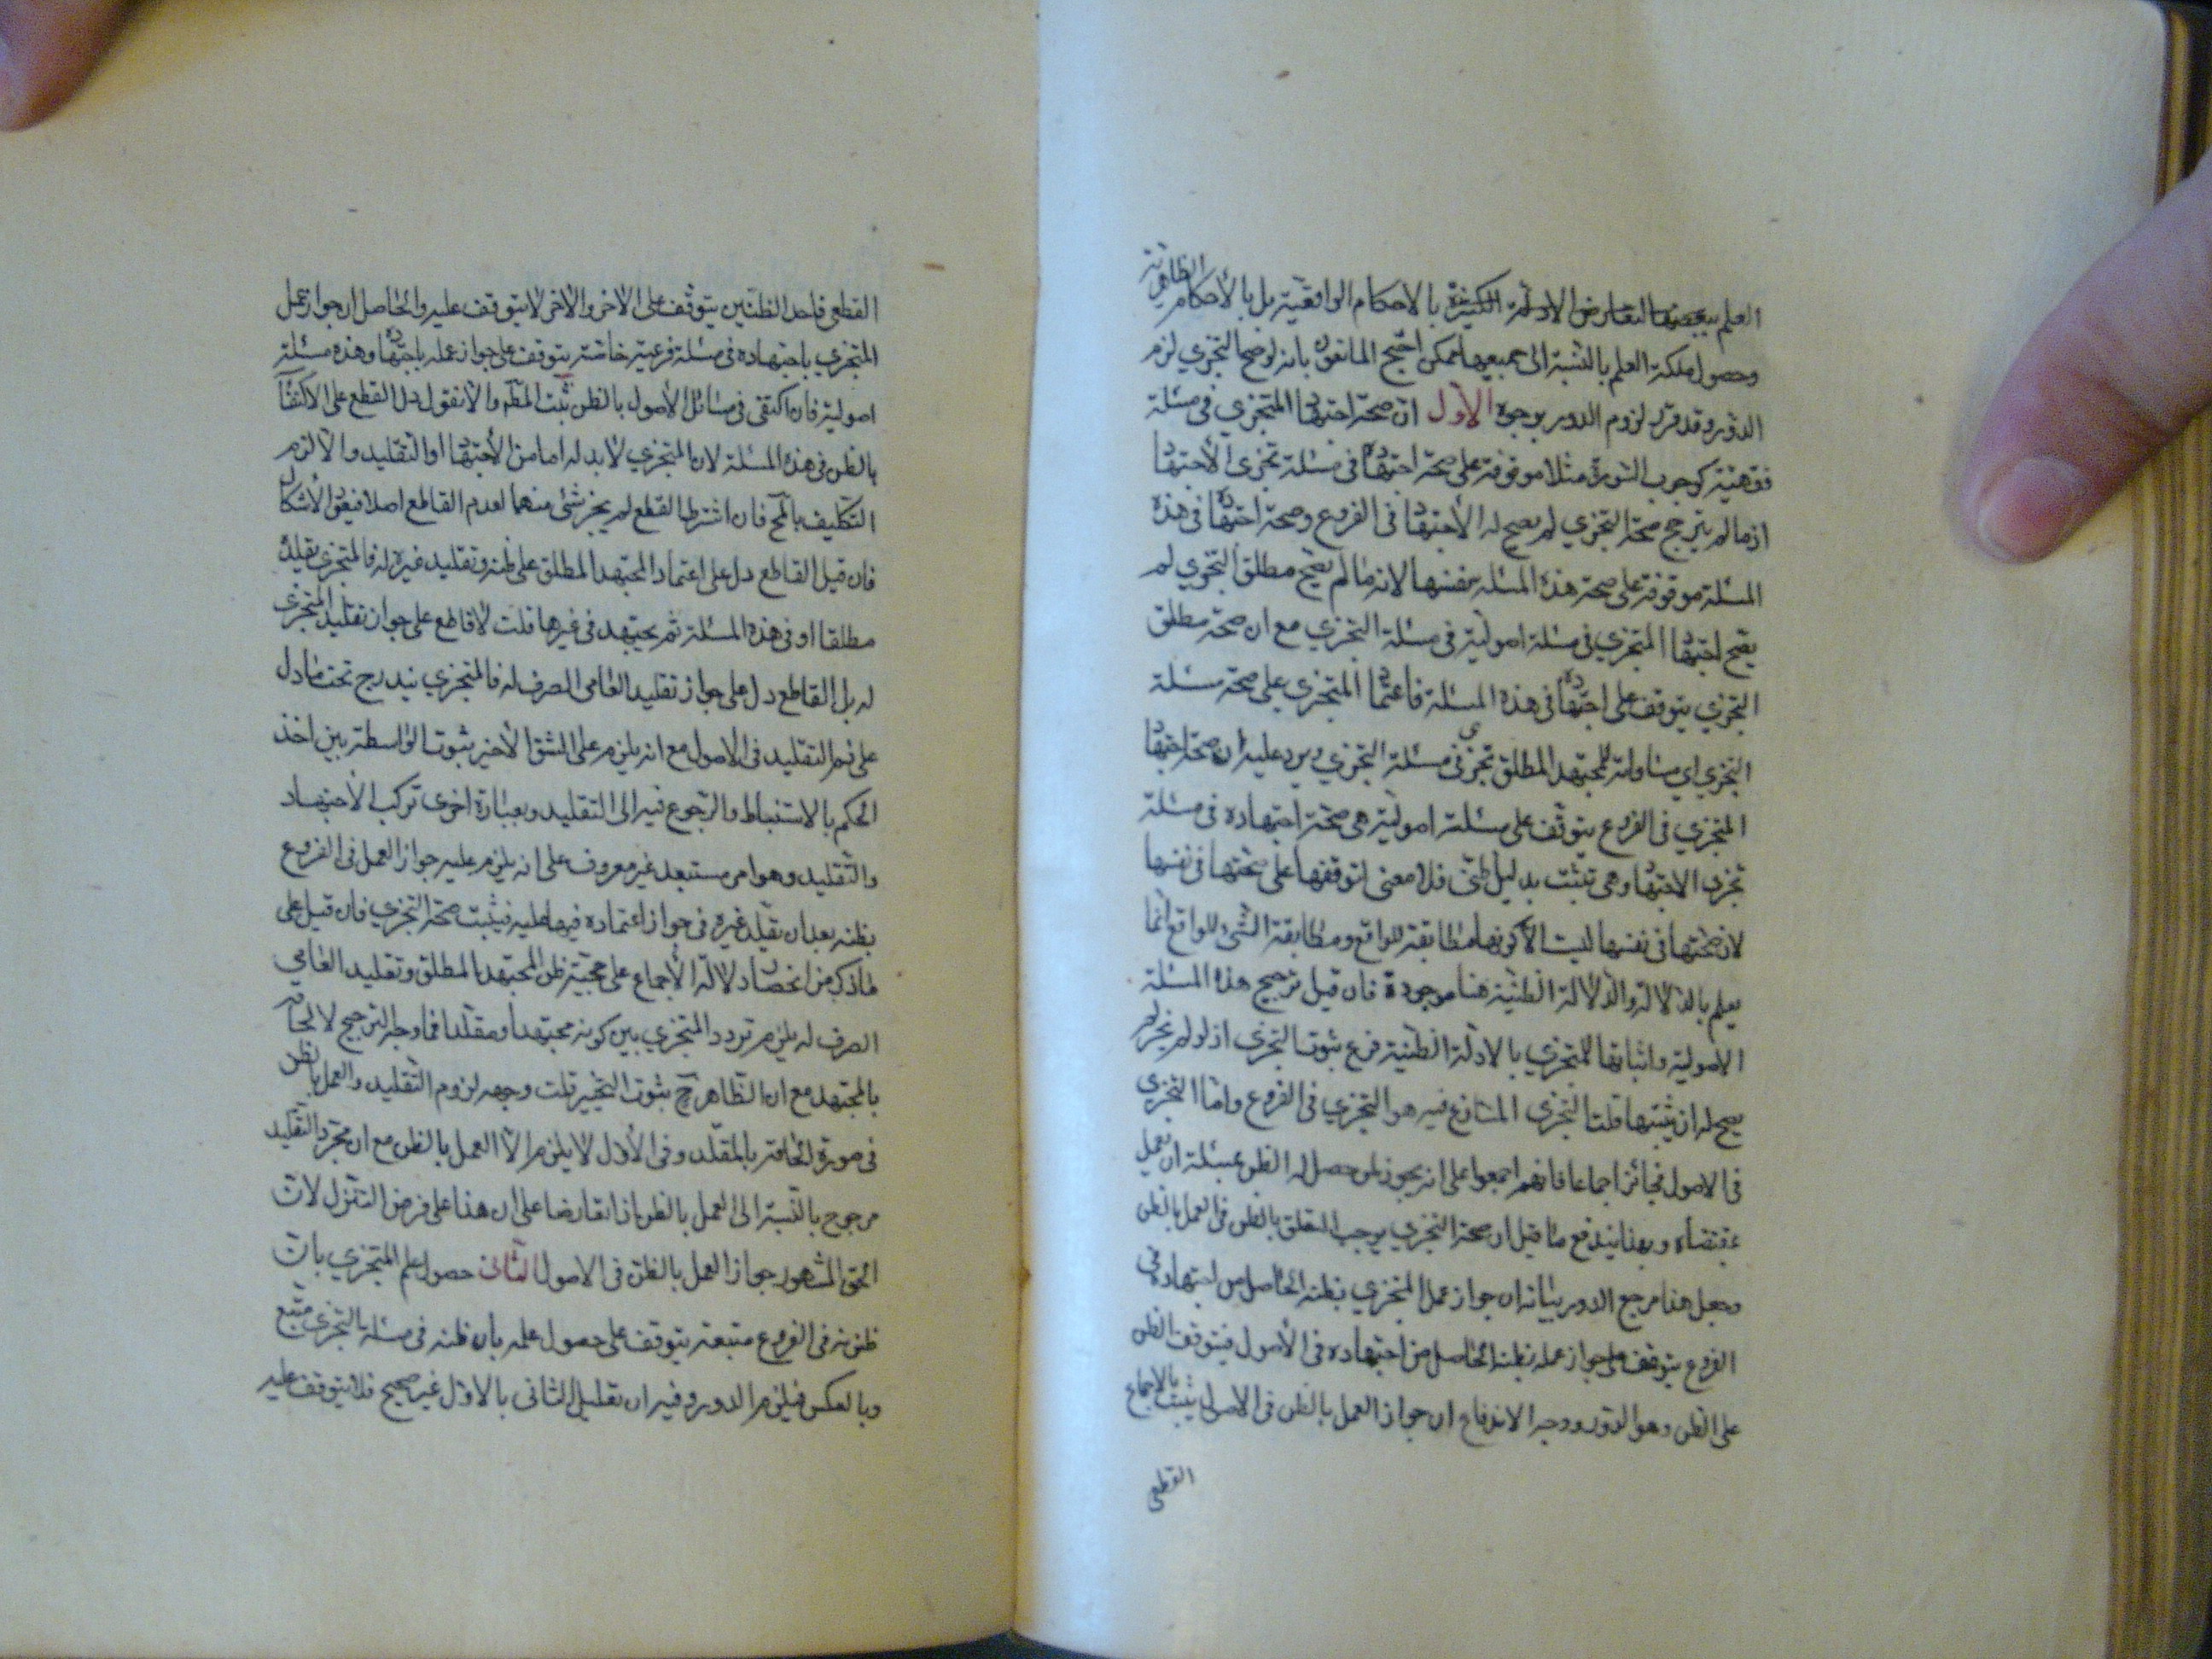 العلم ببعضها لتعارض الادلة الكثيرة بالاحكام الواقعية بل بالأحكام الظاهرية
وحصول ملكة العلم بالنسبة الى جميعها ممكن احتج المانعون بانه لو صح التجزي لزم
الدور وقد قرر لزوم الدور بوجوه الأول ان صحة اجتهاد المتجزي في مسئلة
فقهية كوجوب السورة مثلا موقوفة على صحة اجتهاده في مسئلة تجزى الأجتهاد
اذ ما لم يترجح صحة التجزي لم يصح له الأجتهاد في الفروع وصحة اجتهاده في هذه
المسئلة موقوفة على صحة هذه المسئلة بنفسها لانه ما لم يصح مطلق التجزي لم
يصح اجتهاد المتجزي في مسئلة اصولية في مسئلة التجزي مع ان صحة مطلق
التجزي يتوقف على اجتهاده في هذه المسئلة فاعتماد المتجزي على صحة مسئلة
التجزي اي مساواته للمجتهد المطلق تجزي في مسئلة التجزي ويرد عليه ان صحة اجتهاد
المتجزي في الفروع يتوقف على مسئلة اصولية هي صحة اجتهاده في مسئلة
تجزى الاجتهاد وهي تثبت بدليل ظني فلا معنى لتوقفها على صحتها في نفسها
لان صحتها في نفسها ليست الا كونها مطابقة للواقع ومطابقة الشئ للواقع انما
يعلم بالدلالة والدلالة الظنية هنا موجودة فان قيل ترجيح هذه المسئلة
الاصولية واثباتها للمتجزي بالادلة الظنية فرع ثبوت التجزى اذ لو لم يجز لم
يصح له ان يثبتها قلت التجزى المتنازع فيه هو التجزي في الفروع واما التجزى
في الاصول فجائز اجماعا فانهم اجمعوا على انه يجوز لمن حصل له الظن بمسئلة ان يعمل
بمقتضاه وبهذا يندفع ما قيل ان صحة التجزي يوجب التعلق بالظن في العمل بالظن
وجعل هذا مرجع الدور بيانه ان جواز عمل المتجزي بظنه الحاصل من اجتهاده في
الفروع يتوقف على جواز عمله بظنه الحاصل من اجتهاده في الأصول فيتوقف الظن
على الظن وهو الدور ووجه الاندفاع ان جواز العمل بالظن في الاصول يثبت بالاجماع
القطعي
القطعي فاحد الظنين يتوقف على الاخر والاخر لا يتوقف عليه والحاصل ان جواز عمل
المتجزي باجتهاده في مسئلة فرعية خاصة يتوقف على جواز عمله باجتهاده وهذه مسئلة
اصولية فان اكتفى في مسائل الأصول بالظن ثبت المطلـ والا نقول دل القطع على الاكتفاء
بالظن في هذه المسئلة لان المتجزي لا بد له اما من الأجتهاد او التقليد والا لزم
التكليف بالمحـ فان اشترط القطع لم يجز شئ منهما لعدم القاطع اصلا فيقوى الأشكال
فان قيل القاطع دل على اعتماد المجتهد المطلق على ظنه وتقليد غيره له فالمتجزي يقلده
مطلقا او في هذه المسئلة ثم يجتهد في غيرها قلت لا قاطع على جواز تقليد المتجزى
له بل القاطع دل على جواز تقليد العامى الصرف له فالمتجزي يندرج تحت ما دل
على ذم التقليد في الاصول مع انه يلزم على الشق الأخير ثبوت الواسطة بين اخذ
الحكم بالاستنباط والرجوع فيه الى التقليد وبعبارة اخرى تركب الأجتهاد
والتقليد وهو امر مستبعد غير معروف على انه يلزم عليه جواز العمل في الفروع
بظنه بعد ان يقلد غيره في جواز اعتماده فيها عليه فيثبت صحة التجزي فان قيل على
ما ذكر من انحصار دلالة الأجماع على حجية ظن المجتهد المطلق وتقليد العامي
الصرف له يلزم تردد المتجزي بين كونه مجتهدا ومقلدا فما وجه الترجيح لالحاقه
بالمجتهد مع ان الظاهر ح ثبوت التخيير قلت وجهه لزوم التقليد والعمل بالظن
في صورة الحاقه بالمقلد وفي الأول لا يلزم الا العمل بالظن مع ان مجرد التقليد
مرجوح بالنسبة الى العمل بالظن اذا تعارضا على ان هذا على فرض التنزل لان
الحق المشهور جواز العمل بالظن في الاصول الثانى حصول علم المتجزي بان
ظنونه في الفروع متبعة يتوقف على حصول علمه بان ظنه في مسئلة التجزي متبع
وبالعكس فيلزم الدور وفيه ان تعليل الثاني بالاول غير صحيح فلا يتوقف عليه